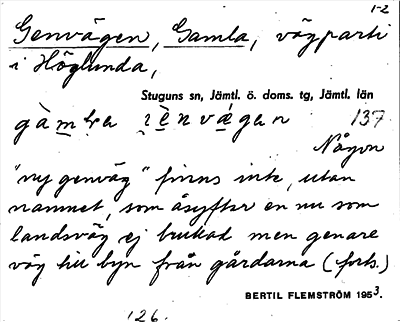 1-2
Genvägen, Gamla, vägparti
i Höglunda,
Stuguns sn, Jämtl. ö. doms. tg, Jämtl. län
137
Någon
"ny genväg" finns inte, utan
namnet, som åsyftar en nu som
landsväg ej brukad men genare
väg till byn från gårdarna (forts.)
BERTIL FLEMSTRÖM 1953.
126.